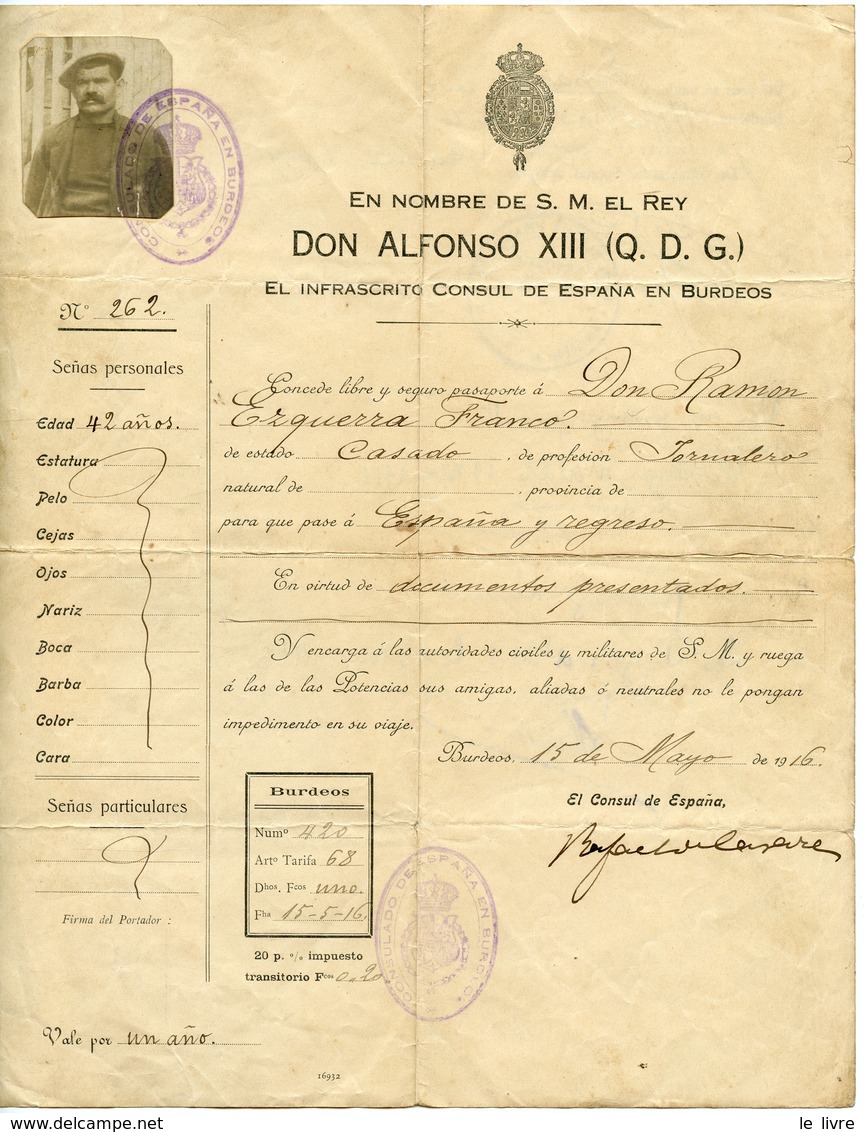 CONSULADO DE ESPAÑA EN BURDEOS
EN NOMBRE DE S. M. EL REY
DON ALFONSO XIII (Q. D. G.)
EL INFRASCRITO CONSUL DE ESPAÑA EN BURDEOS
Nº 262.
Señas personales
Edad 42 años.
Estatura
Pelo
Cejas
Ojos
Nariz
Boca
Barba
Color
Cara
Señas particulares
Firma del Portador :
Concede libre y seguro pasaporte á Don Ramon
Ezquerra Franco.
de estado Casado, de profesion Jornalero
natural de , provincia de
para que pase á España y regreso.
En virtud de documentos presentados.
Y encarga á las autoridades civiles y militares de S. M. y ruega
á las de las Potencias sus amigas, aliadas ó neutrales no le pongan
impedimento en su viaje.
Burdeos, 15 de Mayo de 1916.
El Consul de España,
Burdeos
Numº 420
Artº Tarifa 68
Dhos. Fcos uno.
Fha 15-5-16.
20 p. % impuesto
transitorio Fcos 0.20
CONSULADO DE ESPAÑA EN BURDEOS
Vale por un año.
16932
le livre